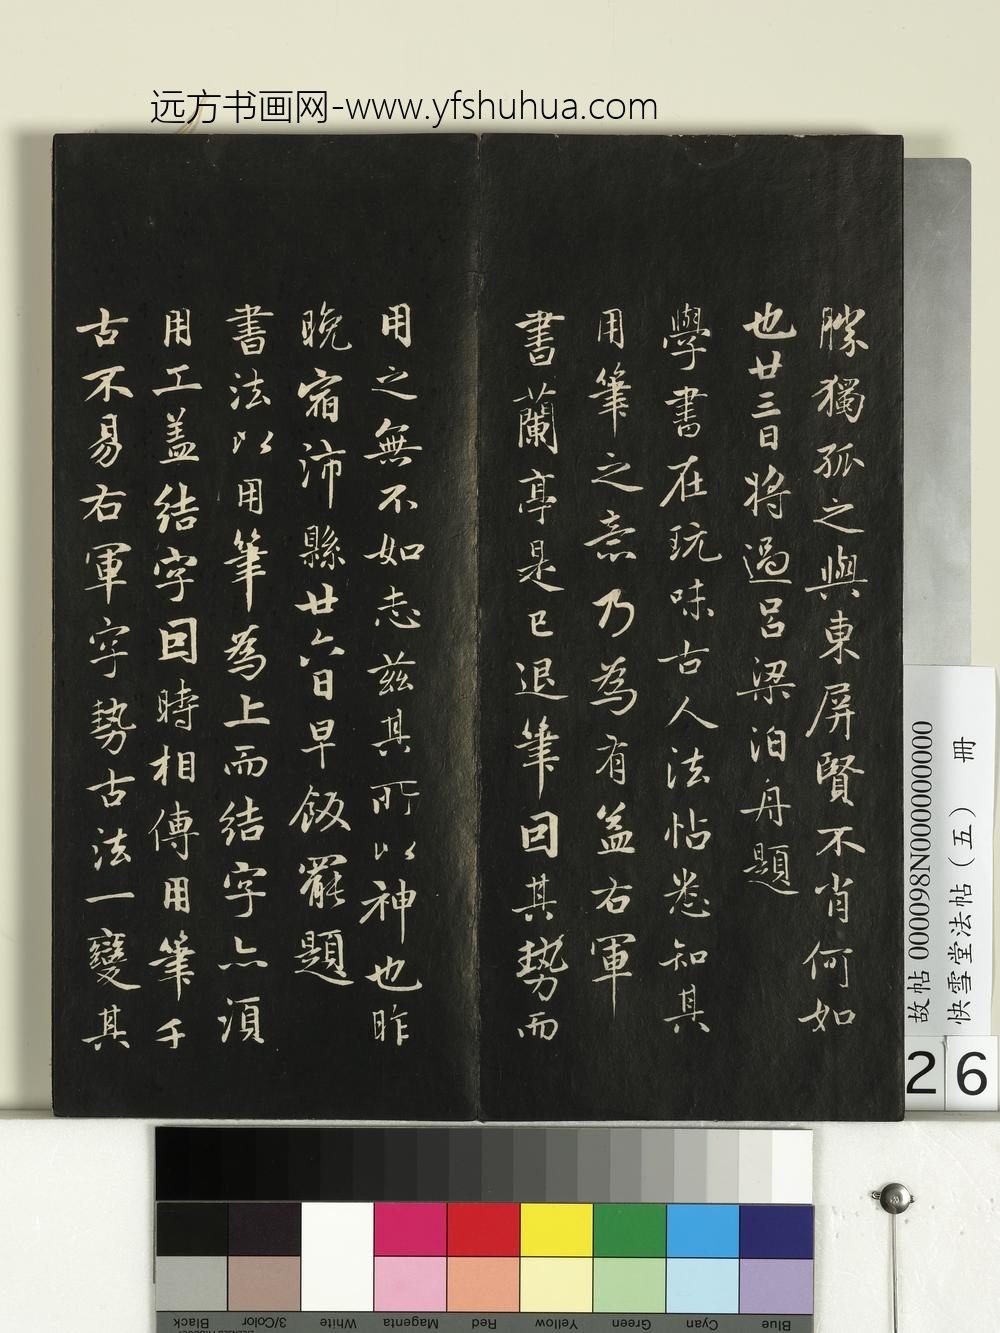 远方书画网-www.yfshuhua.com
勝獨孤之與東屏賢不肖何如
也廿三日將過呂梁泊舟題
學書在玩味古人法帖悉知其
用筆之意乃為有益右軍
書蘭亭是已退筆因其勢而
用之無不如志茲其所以神也昨
晚宿沛縣廿六日早飯罷題
書法以用筆為上而結字亦須
用工蓋結字因時相傳用筆千
古不易右軍字勢古法一變其
故帖 000098N000000000
快雪堂法帖（五） 冊
26
Black
3/Color
White
Magenta
Red
Yellow
Green
Cyan
Blue